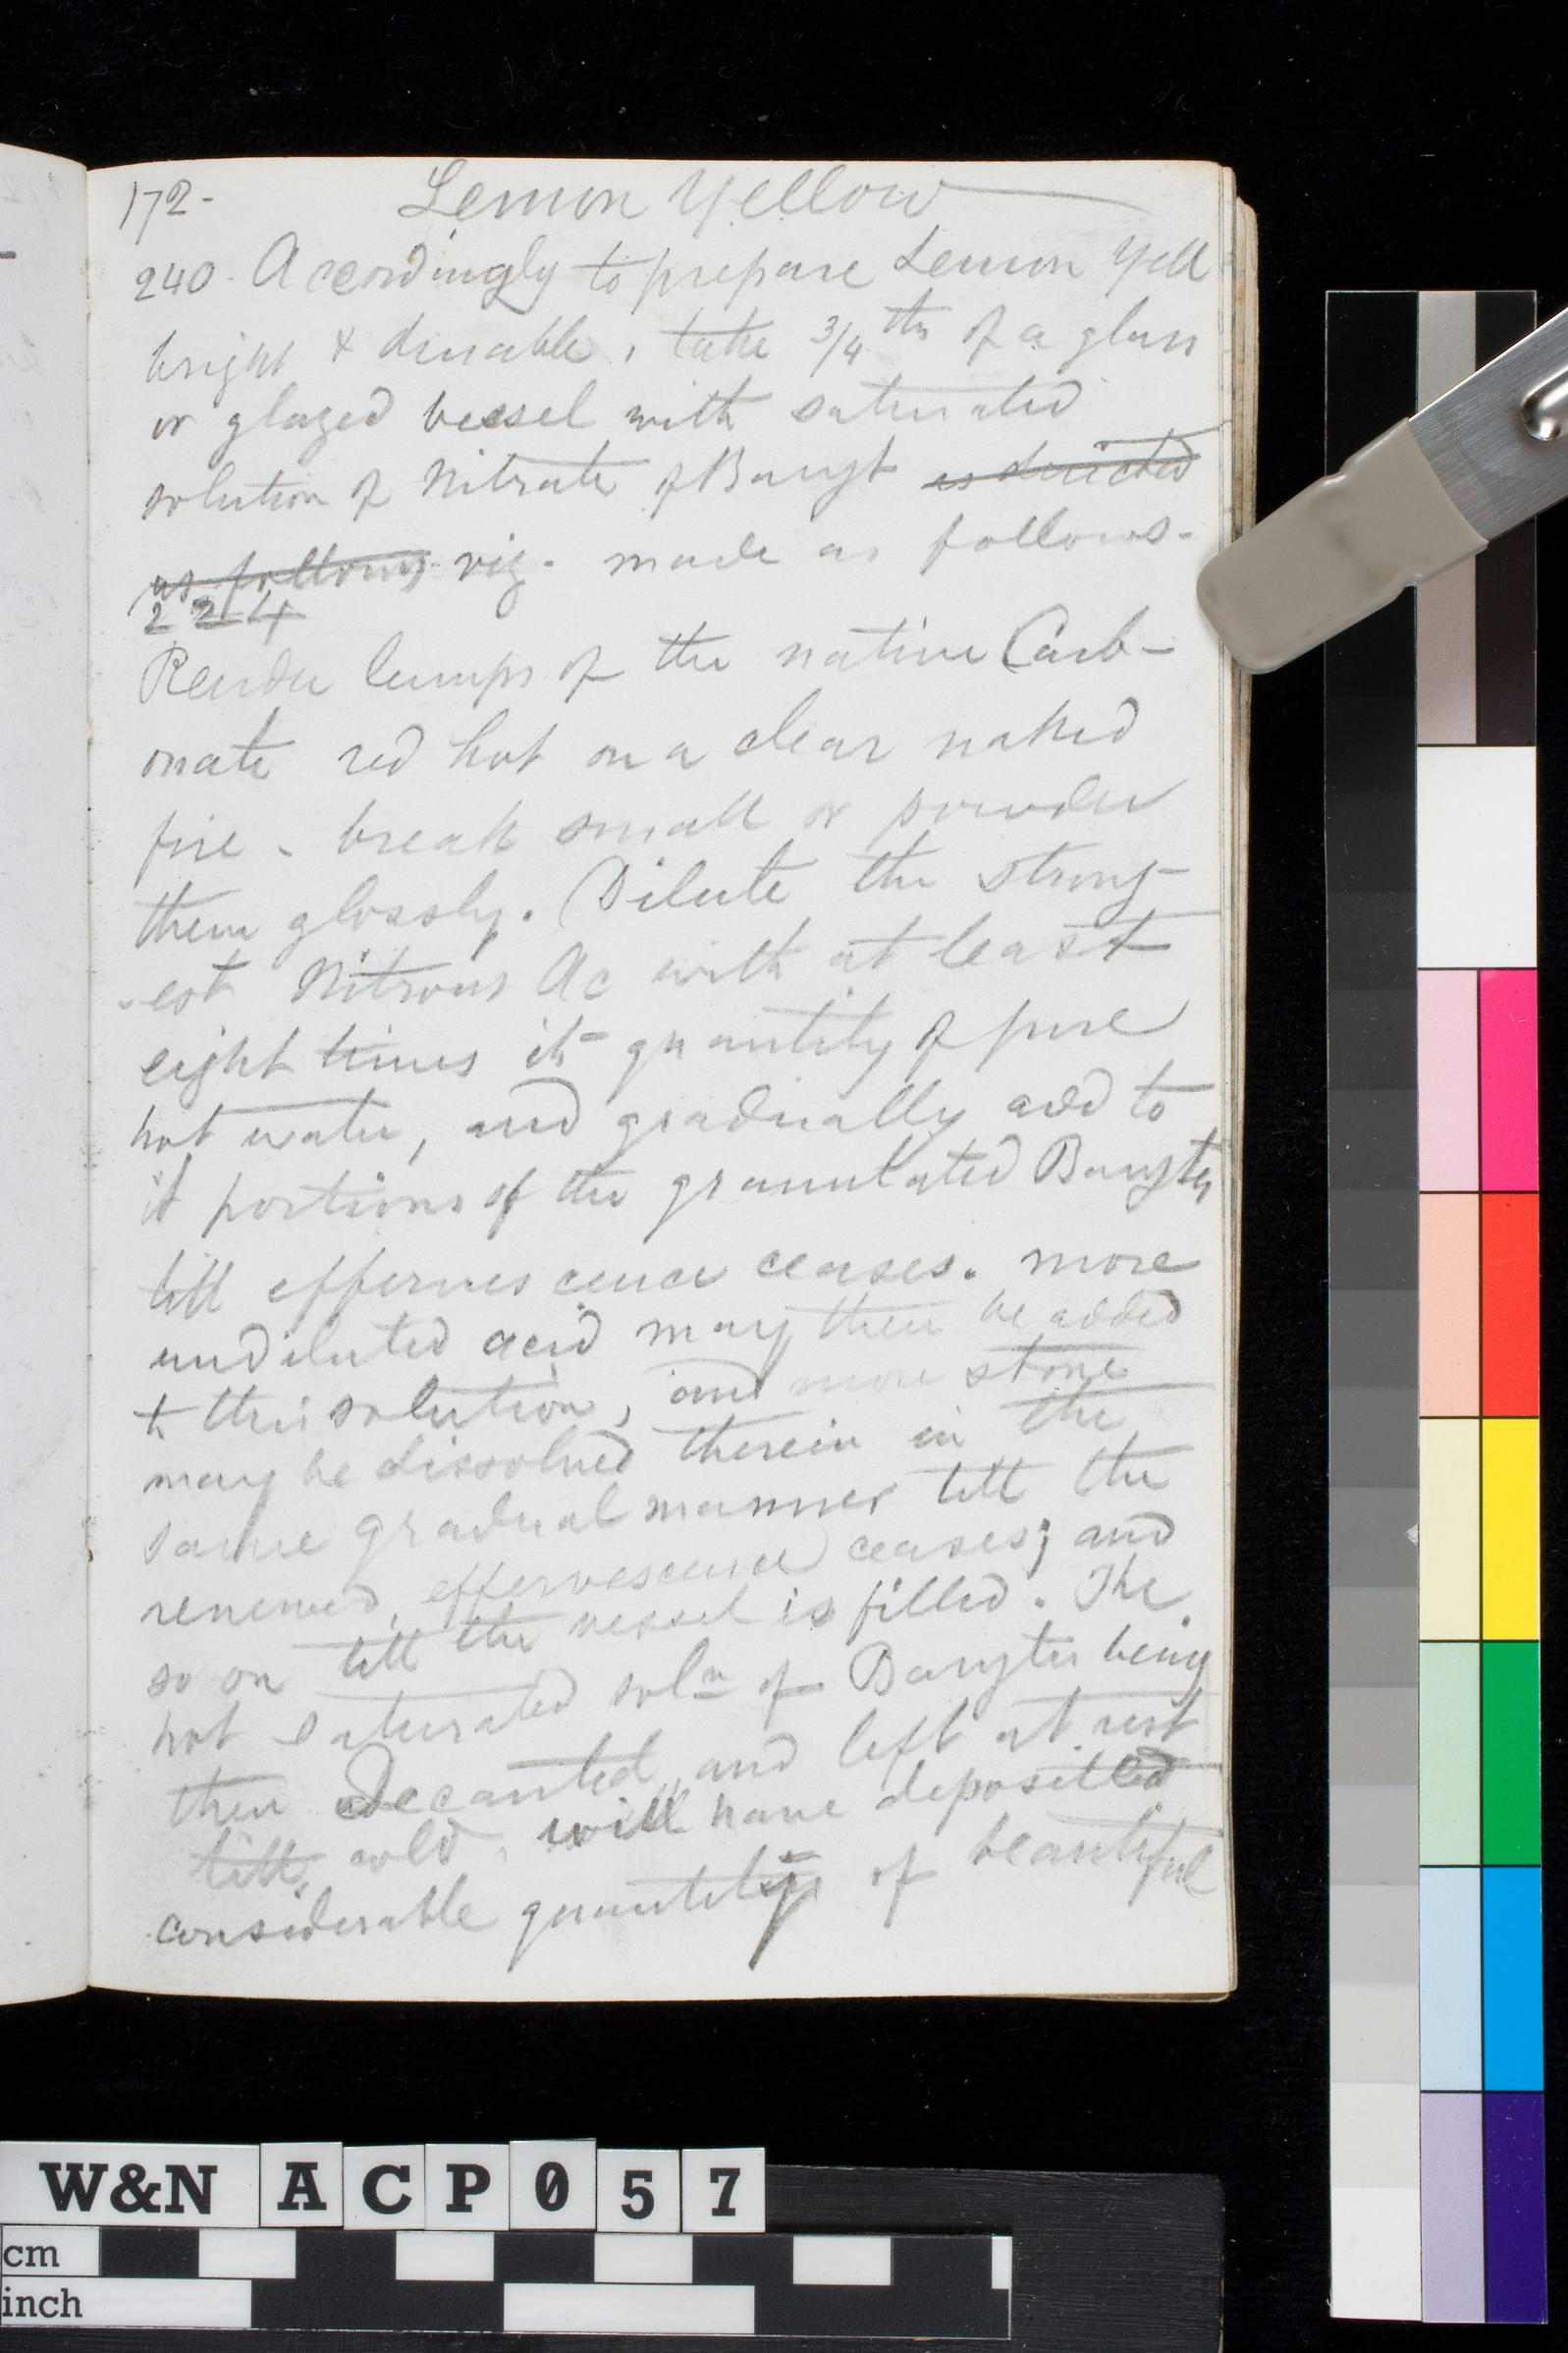 172- Lemon Yellow
240. Accordingly to prepare Lemon Yell
bright & durable, take 3/4ths of a glass
or glazed vessel with saturated
solution of Nitrate of Baryt as directed
as follows viz. made as follows.
224
Render lumps of the native Carb-
onate red hot on a clear naked
fire - break small or powder
them glossly. Dilute the strong-
-est Nitrous Ac with at least
eight times its quantity of pure
hot water, and gradually add to
it portions of the granulated Barytes
till effervescence ceases. more
undiluted acid may then be added
to this solution, and more stone
may be dissolved therein in the
same gradual manner till the
renewed effervescence ceases; and
so on till the vessel is filled. The
hot saturated soln of Barytes being
then decanted, and left at rest
till cold, will have deposited
considerable quantity of beautiful
W&N ACP057
cm
inch